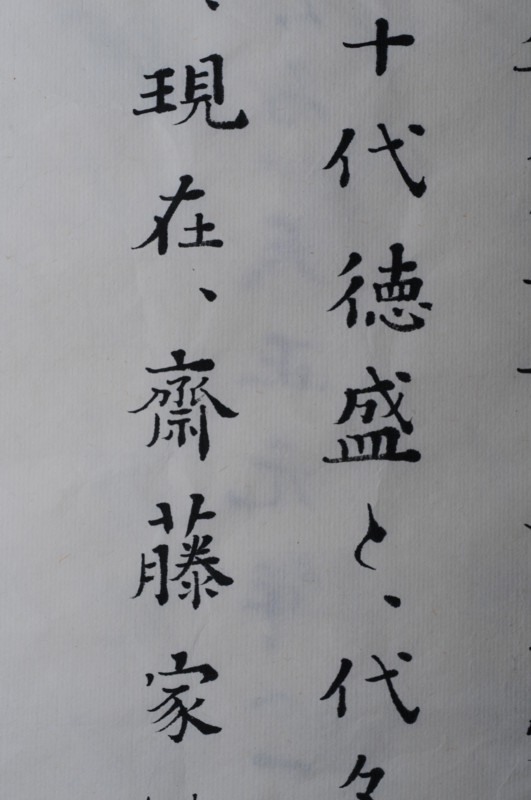 十代徳盛と、代々
、現在、齋藤家